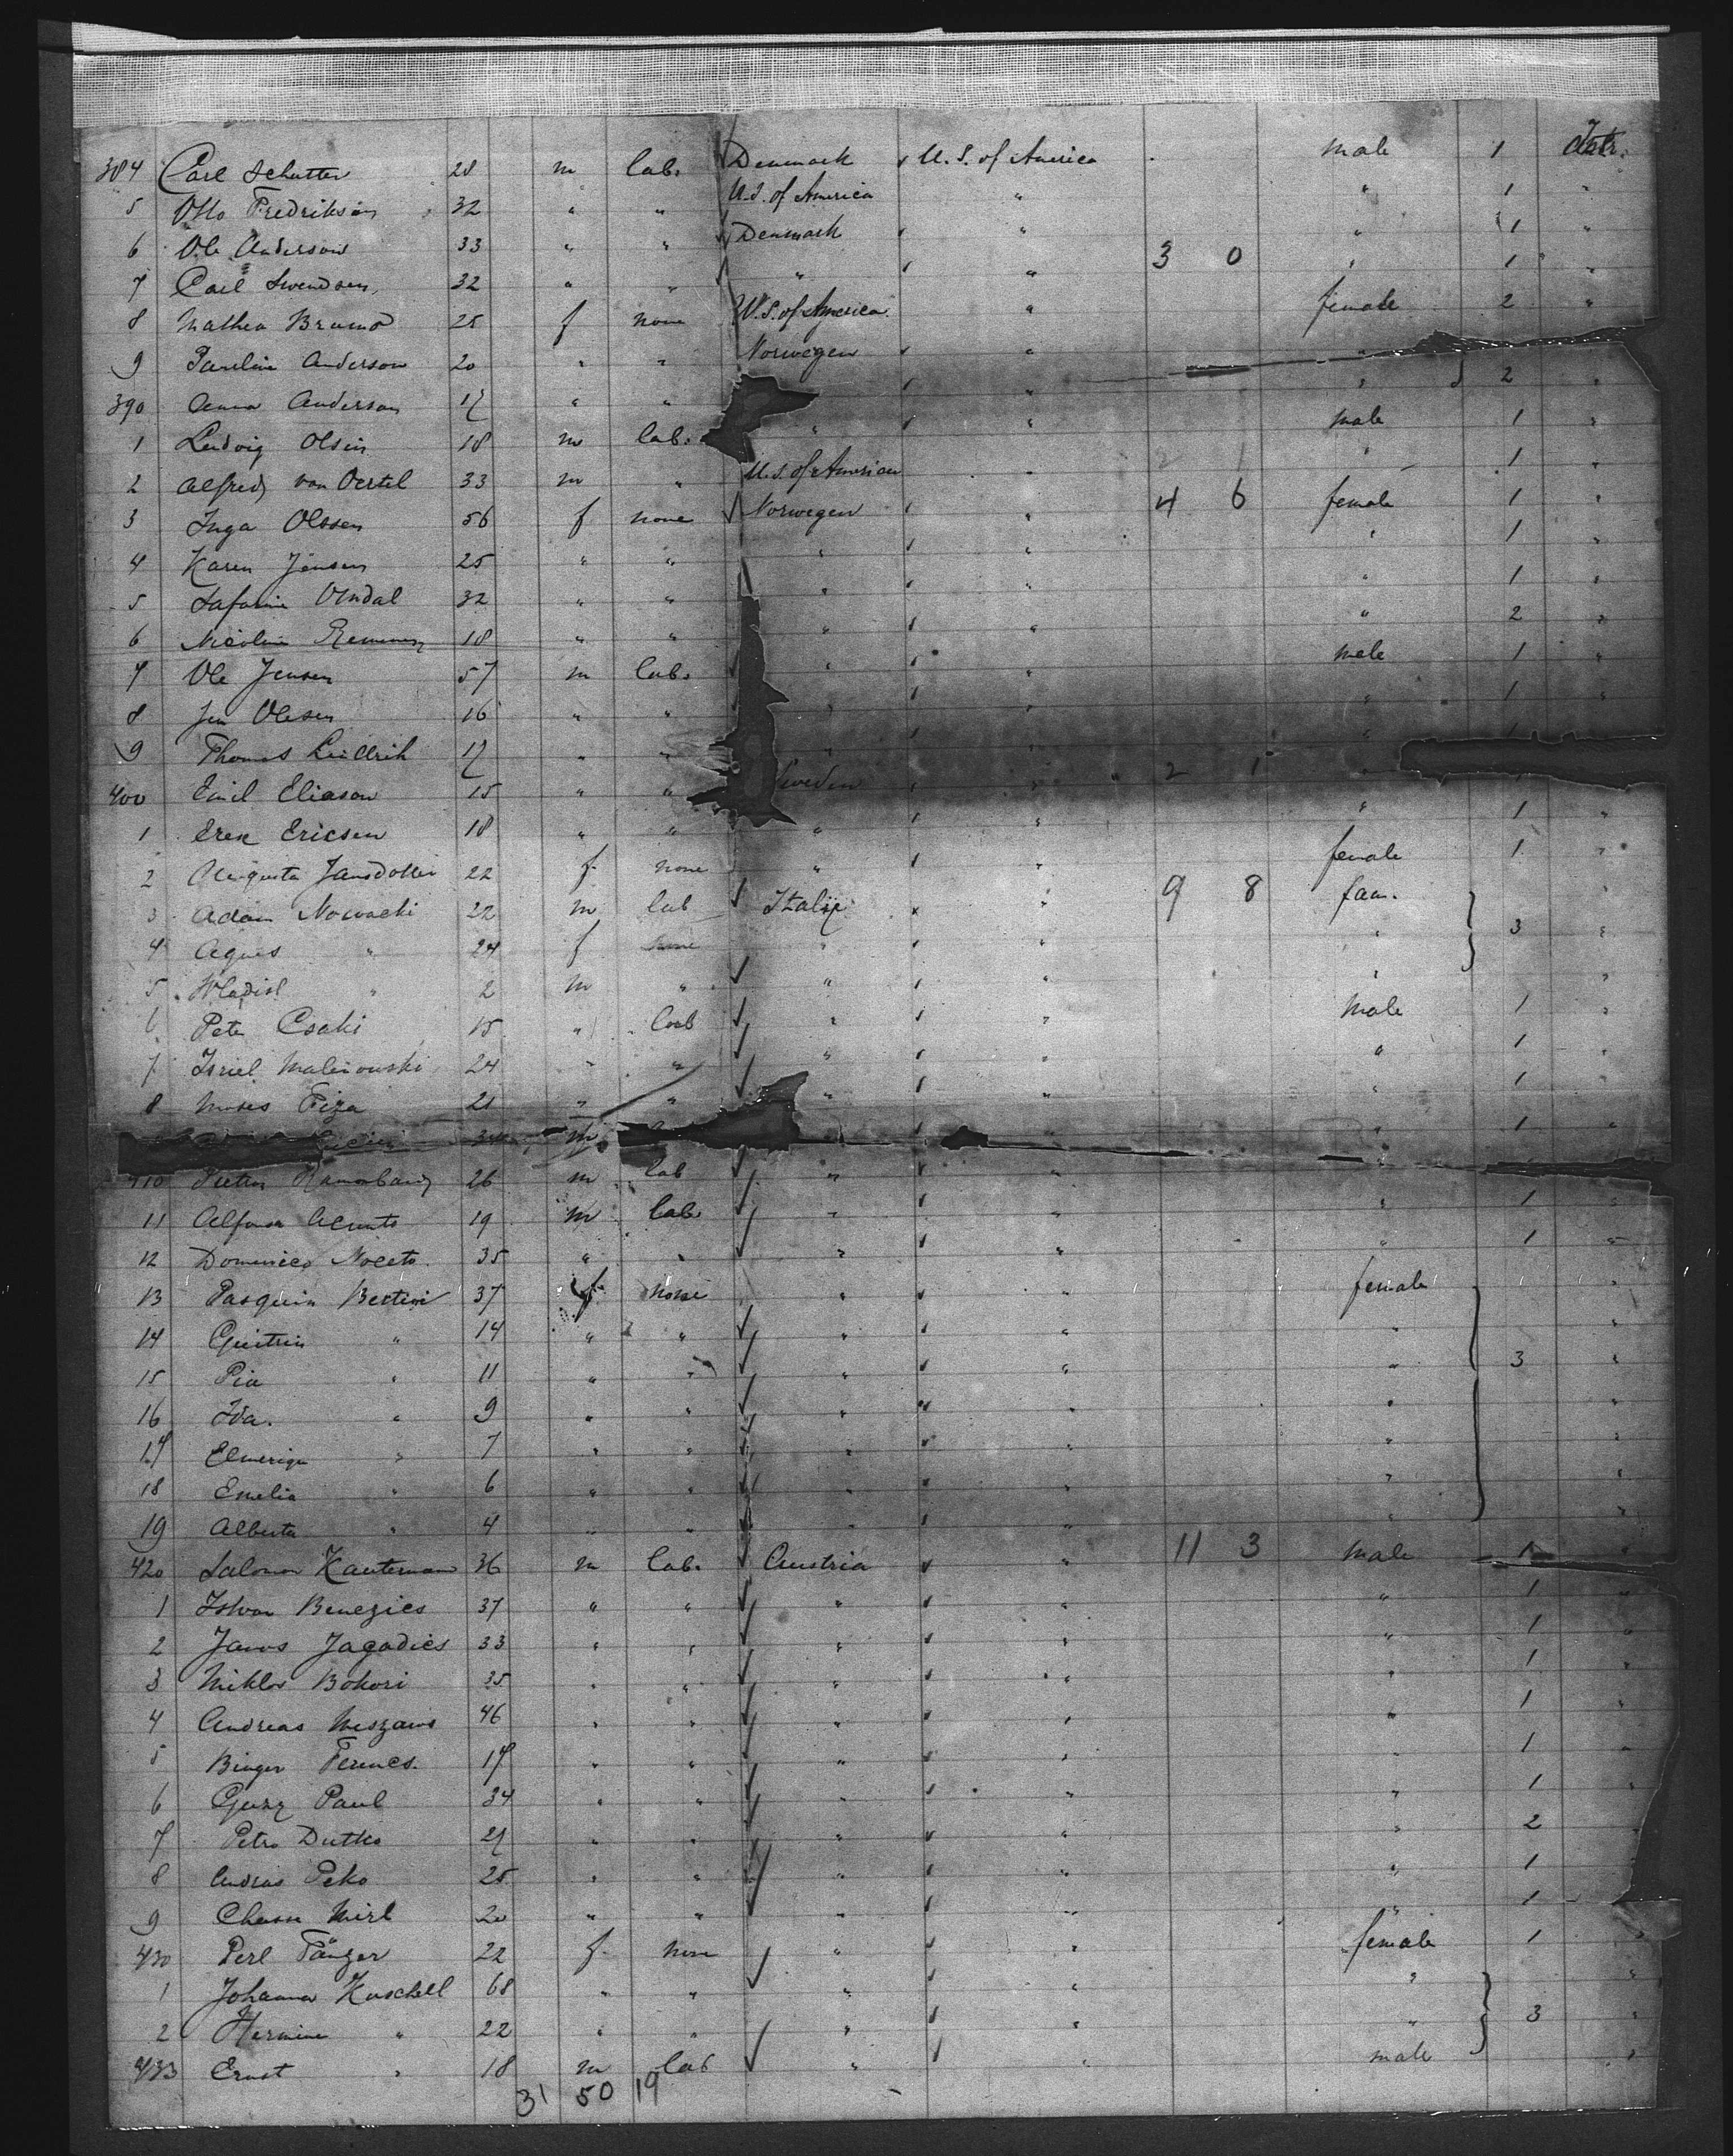 384 Carl Schutter 28 m lab. Denmark U.S. of America male 1 Intr.
5 Otto Fredrikson 32 " " U.S. of America " " 1 "
6 Ole Anderson 33 " " Denmark " " 1 "
7 Carl Swendsen 32 " " " " 3 0 " 1 "
8 Mathea 25 f none U.S. of America " female 2 "
9 Pauline Anderson 20 " " Norwegen " "
390 Anna Anderson 17 " " " " 2 "
1 Ludvig Olsen 18 m lab. " " male 1 "
2 Alfred von Oertel 33 m " U.S. of American " 2 1 " 1 "
3 Inga Olssen 56 f none Norwegen " 4 6 female 1 "
4 Karen Jensen 25 " " " " " 1 "
5 32 " " " " " 1 "
6 18 " " " " " 2 "
7 Ole Jensen 57 m lab. " " male 1 "
8 Jen Olesen 16 " " " " " 1 "
9 Thomas 17 " " " " "
400 Emil Eliason 15 " " Sweden " 2 1 "
1 Erek Ericsen 18 " " " " " 1 "
2 Augusta Jansdotter 22 f none " " female 1 "
3 Adam Nowacki 22 m lab Italy " 9 8 fam. "
4 Agnes " 24 f none " " " 3 "
5 Wladisl " 2 m " " " " "
6 Peter Csaki 15 " lab " " male 1 "
7 Isriel Malinowski 24 " " " " " 1 "
8 Moses Fiza 21 " " " " " 1 "
34 m " " " 1 "
410 26 m lab "
11 Alfonso 19 m lab. " " " 1 "
12 Domenico Noceto 35 " " " " " 1 "
13 Pasquin Bertini 37 f none " " female "
14 " 14 " " " " " "
15 Pia " 11 " " " " " 3 "
16 Ida. " 9 " " " " " "
17 " 7 " " " " " "
18 Emelia " 6 " " " " " "
19 Alberta " 4 " " " " " "
420 Salomon Kauteman 36 m lab. Austria " 11 3 male 1 "
1 Istvan Benezics 37 " " " " " 1 "
2 Janos Jagadics 33 " " " " " 1 "
3 Miklos Bokori 35 " " " " " 1 "
4 Andreas Meszaros 46 " " " " " 1 "
5 Binger Ferencs. 17 " " " " " 1 "
6 Paul 34 " " " " " 1 "
7 Petro Dutko 27 " " " " " 2 "
8 Andras Peko 25 " " " " " 1 "
9 Mirl 20 " " " " " 1 "
430 Perl Tänzer 22 f none " " female 1 "
1 Johanna Kuschell 68 " " " " " "
2 Hermine " 22 " " " " " 3 "
433 Ernst " 18 m lab " " male "
31 50 19